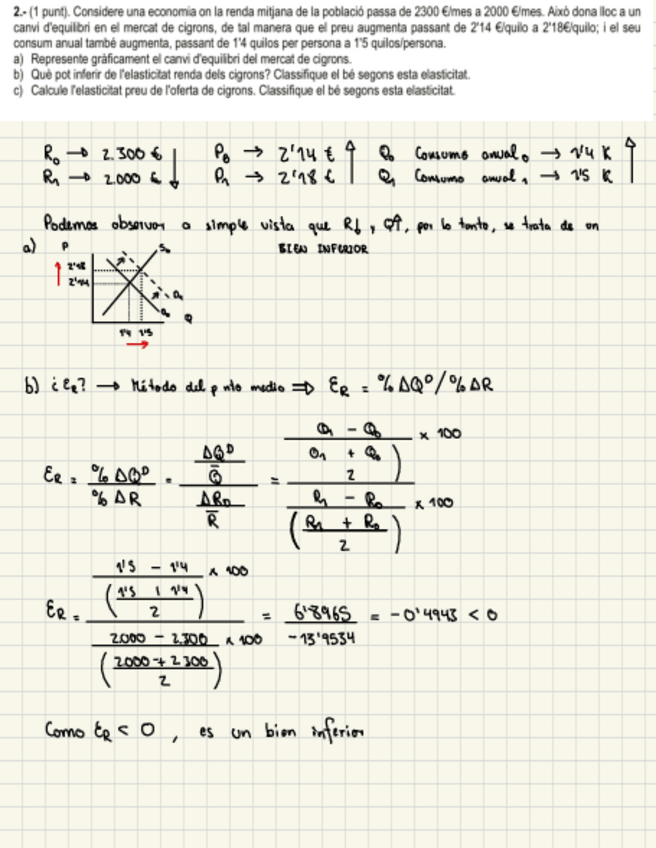 2.- (1 punt). Considere una economia on la renda mitjana de la població passa de 2300 €/mes a 2000 €/mes. Això dona lloc a un
canvi d'equilibri en el mercat de cigrons, de tal manera que el preu augmenta passant de 2'14 €/quilo a 2'18€/quilo; i el seu
consum anual també augmenta, passant de 1'4 quilos per persona a 1'5 quilos/persona.
a) Represente gràficament el canvi d'equilibri del mercat de cigrons.
b) Què pot inferir de l'elasticitat renda dels cigrons? Classifique el bé segons esta elasticitat.
c) Calcule l'elasticitat preu de l'oferta de cigrons. Classifique el bé segons esta elasticitat.
R₀ → 2.300 € ↓ P₀ → 2'14 € ↑ Q₀ Consumo anual₀ → 1'4 K ↑
R₁ → 2.000 € P₁ → 2'18 € Q₁ Consumo anual₁ → 1'5 K
Podemos observar a simple vista que R↓ y Q↑, por lo tanto, se trata de un
BIEN INFERIOR
a) P S₀
↑ 2'18
2'14
D₁
D₀
Q
1'4 1'5
→
b) ¿ε_R? → Método del p nto medio ⇒ ε_R = %ΔQᴰ/%ΔR
ε_R = %ΔQᴰ / %ΔR = (ΔQᴰ / Q̄) / (ΔR₀ / R̄) = ((Q₁ - Q₀) / (Q₁ + Q₀ / 2) × 100) / ((R₁ - R₀) / (R₁ + R₀ / 2) × 100)
ε_R = ((1'5 - 1'4) / (1'5 + 1'4 / 2) × 100) / ((2.000 - 2.300) / (2.000 + 2.300 / 2) × 100) = 6'8965 / -13'9534 = -0'4943 < 0
Como ε_R < 0, es un bien inferior